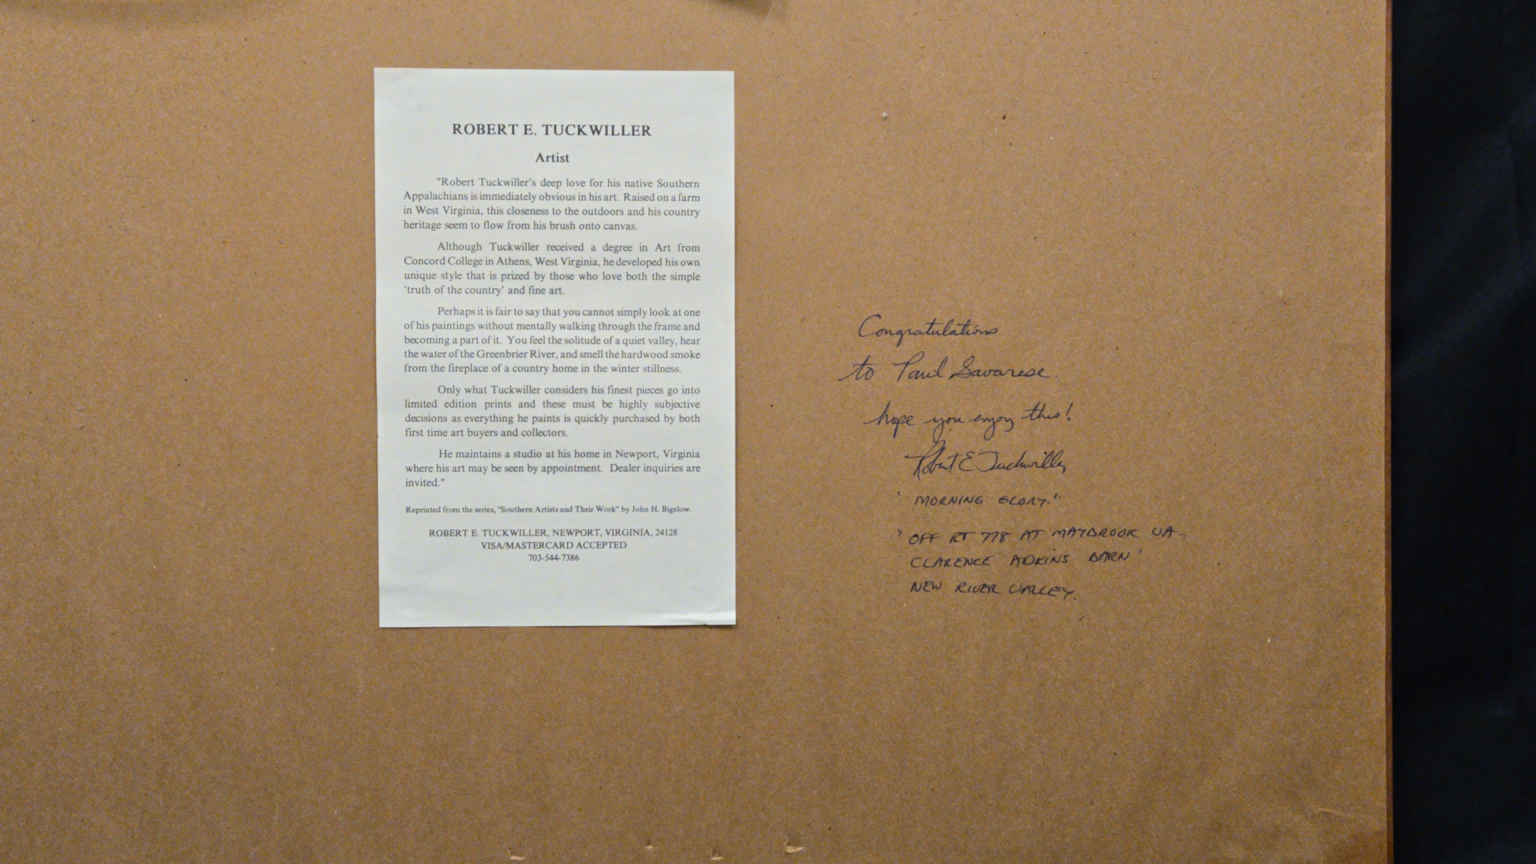 ROBERT E. TUCKWILLER
Artist
"Robert Tuckwiller's deep love for his native Southern
Appalachians is immediately obvious in his art. Raised on a farm
in West Virginia, this closeness to the outdoors and his country
heritage seem to flow from his brush onto canvas.
Although Tuckwiller received a degree in Art from
Concord College in Athens, West Virginia, he developed his own
unique style that is prized by those who love both the simple
'truth of the country' and fine art.
Perhaps it is fair to say that you cannot simply look at one
of his paintings without mentally walking through the frame and
becoming a part of it. You feel the solitude of a quiet valley, hear
the water of the Greenbrier River, and smell the hardwood smoke
from the fireplace of a country home in the winter stillness.
Only what Tuckwiller considers his finest pieces go into
limited edition prints and these must be highly subjective
decisions as everything he paints is quickly purchased by both
first time art buyers and collectors.
He maintains a studio at his home in Newport, Virginia
where his art may be seen by appointment. Dealer inquiries are
invited."
Reprinted from the series, "Southern Artists and Their Work" by John H. Bigelow.
ROBERT E. TUCKWILLER, NEWPORT, VIRGINIA, 24128
VISA/MASTERCARD ACCEPTED
703-544-7386
Congratulations
to Paul Savarese.
hope you enjoy this!
Robert E Tuckwiller
"MORNING GLORY."
"OFF RT 778 AT MAYBROOK VA.
CLARENCE ADKINS BARN"
NEW RIVER VALLEY.